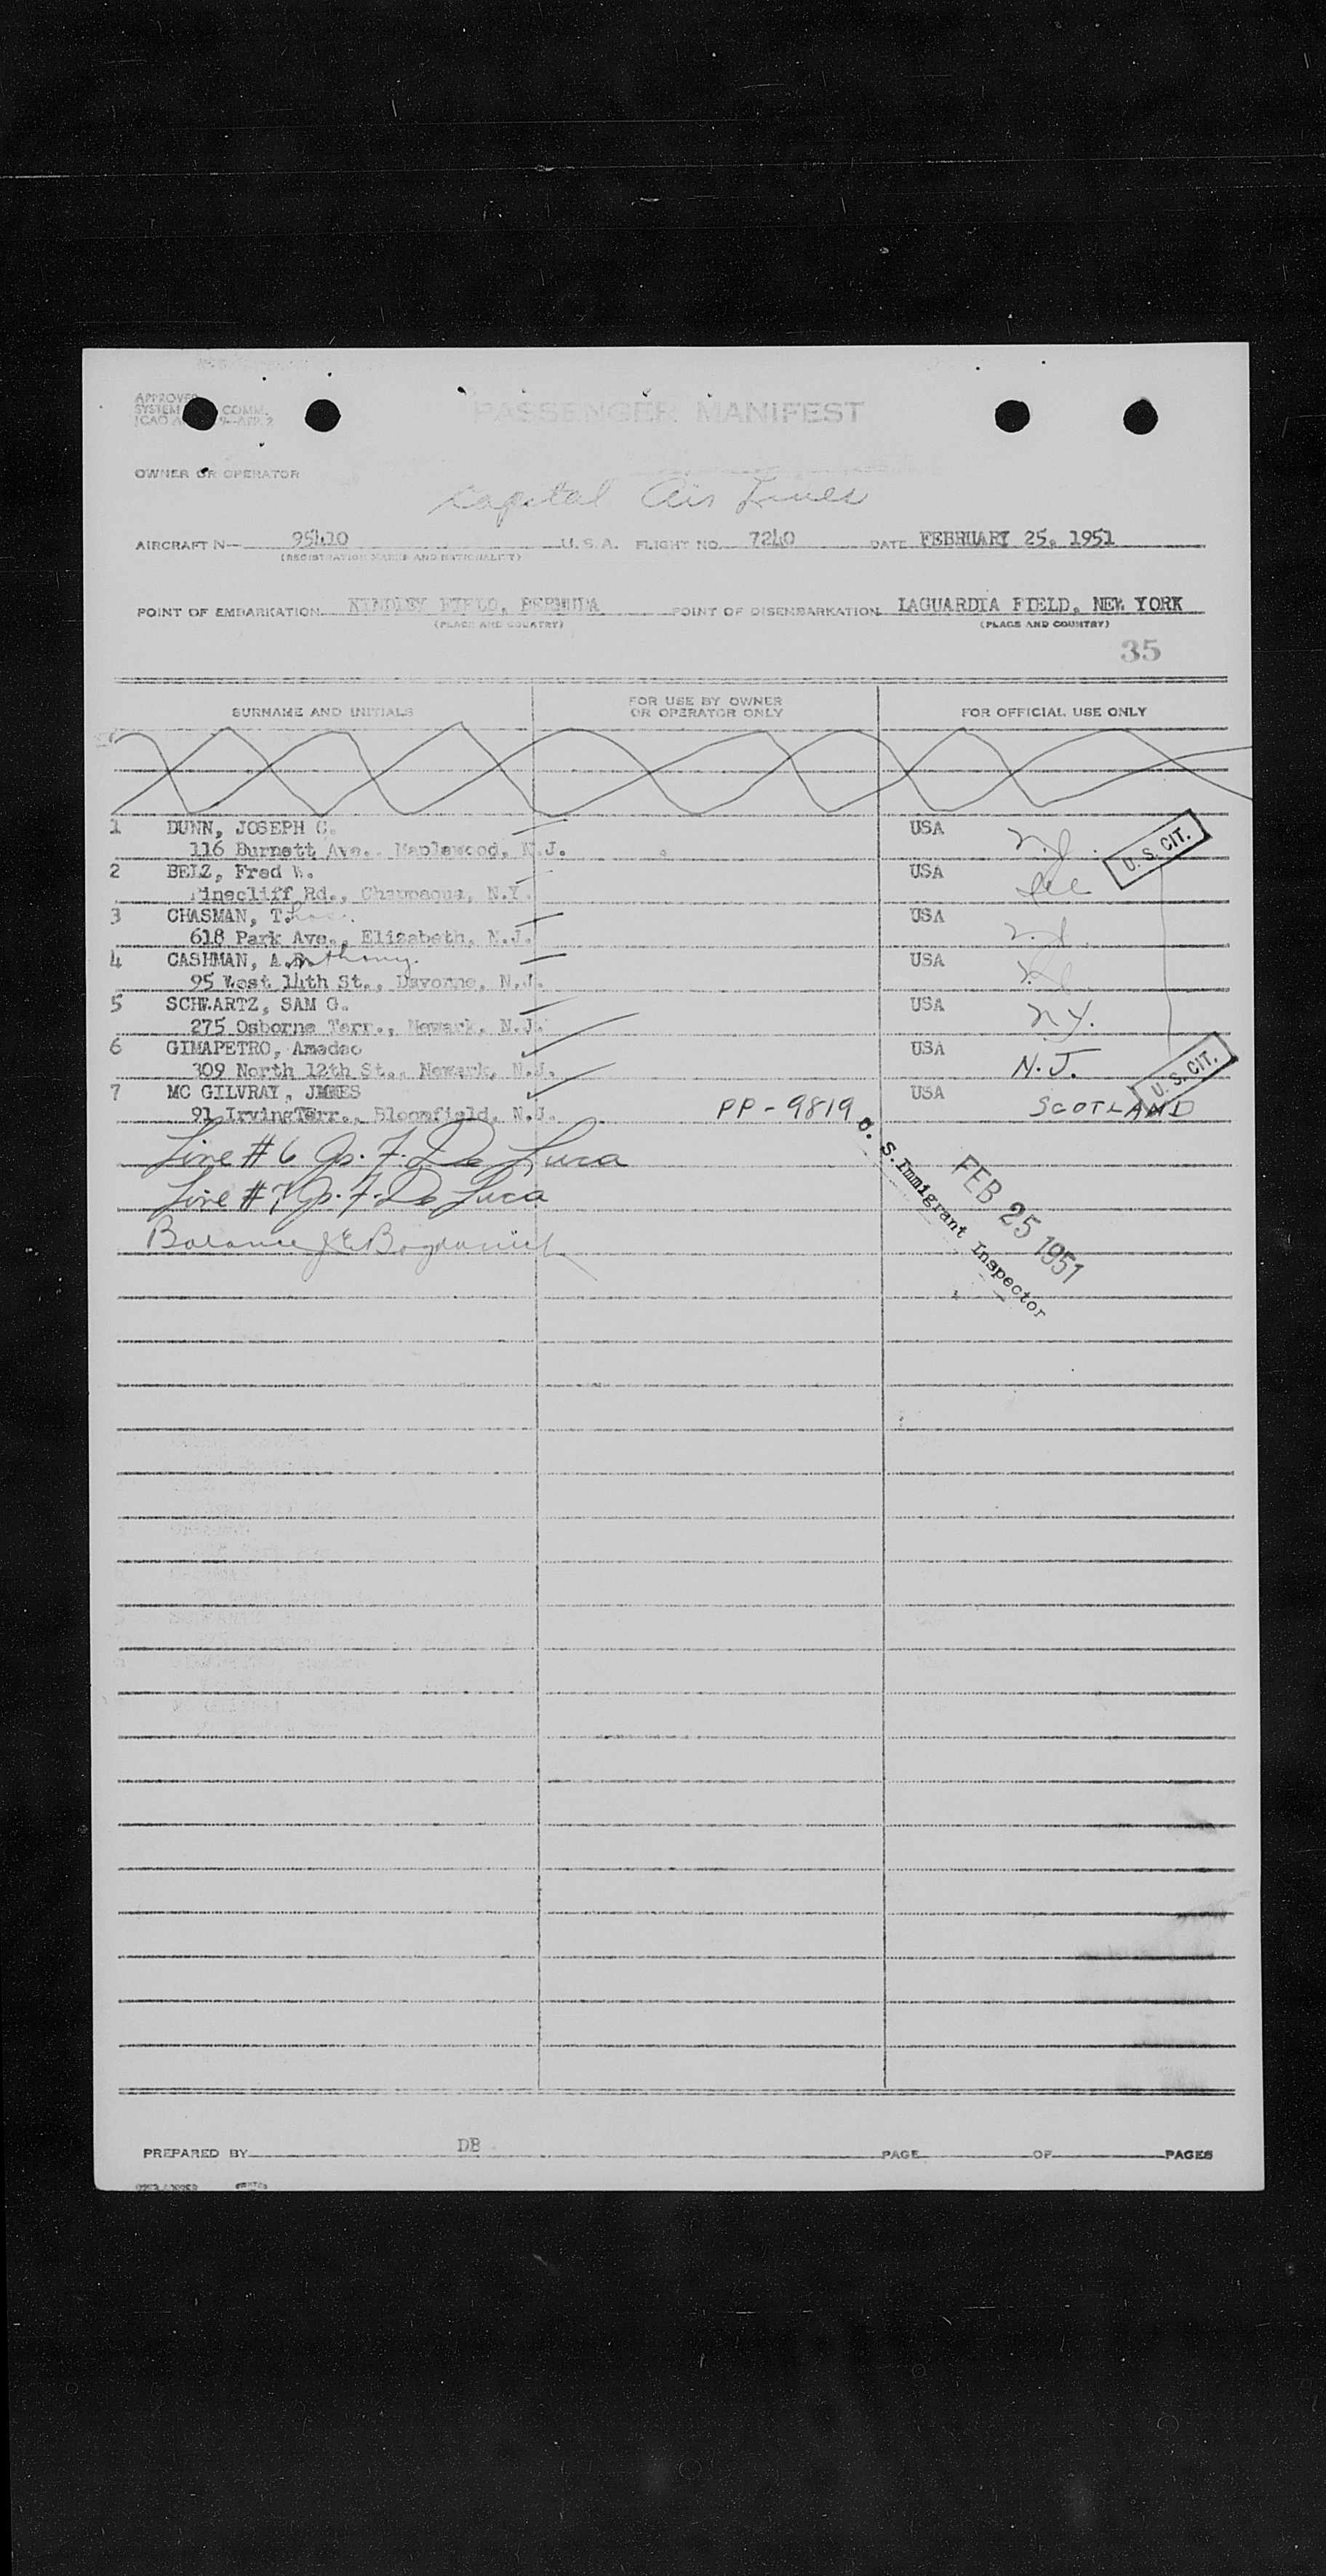 PASSENGER MANIFEST
OWNER OR OPERATOR
Capital Air Lines
AIRCRAFT N— 95410 U.S.A. FLIGHT NO. 7240 DATE FEBRUARY 25, 1951
(REGISTRATION MARKS AND NATIONALITY)
POINT OF EMBARKATION KINDLEY FIELD, BERMUDA POINT OF DISEMBARKATION LAGUARDIA FIELD, NEW YORK
(PLACE AND COUNTRY) (PLACE AND COUNTRY)
35
SURNAME AND INITIALS FOR USE BY OWNER OR OPERATOR ONLY FOR OFFICIAL USE ONLY
1 DUNN, JOSEPH C. USA N.J.
116 Burnett Ave., Maplewood, N.J. U.S. CIT.
2 BELZ, Fred W. USA
Pinecliff Rd., Chappaqua, N.Y.
3 CHASMAN, T. USA N.J.
618 Park Ave., Elizabeth, N.J.
4 CASHMAN, A. Anthony USA N.J.
95 West 14th St., N.J.
5 SCHWARTZ, SAM G. USA N.Y.
275 Osborne Terr., Newark, N.J.
6 GIMAPETRO, Amadeo USA N.J.
309 North 12th St., Newark, N.J. U.S. CIT.
7 MC GILVRAY, JAMES USA
91 IrvingTerr., Bloomfield, N.J. PP-9819 SCOTLAND
Line #6 Jos. F. De Luca
Line #7 Jos. F. De Luca
Balance J E Bogdanich
U. S. Immigrant Inspector
FEB 25 1951
PREPARED BY DB PAGE OF PAGES